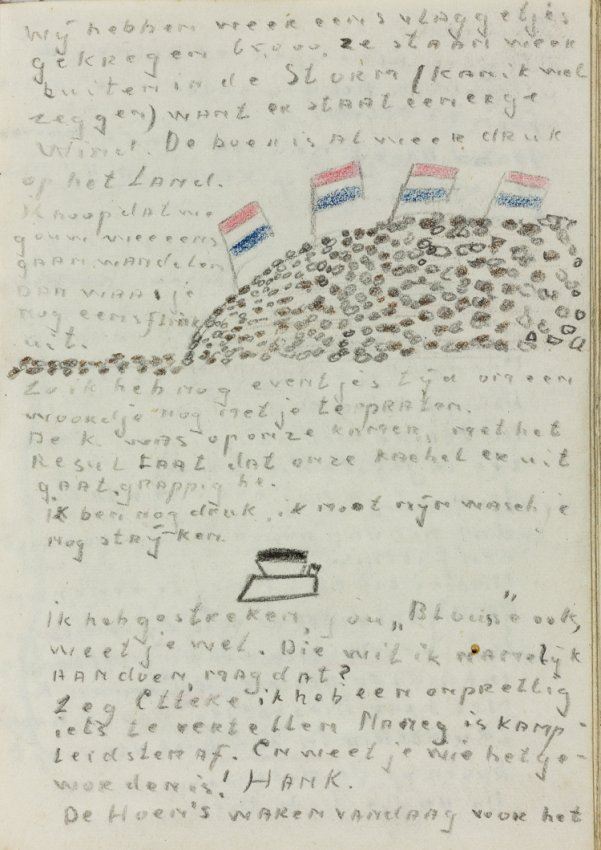 Wij hebben weer eens vlaggetjes
gekregen 65.000. ze staan weer
buiten in de Storm (kan ik wel
zeggen) want er staat een erge
wind. De boer is al weer druk
op het Land.
Ik hoop dat we
gouw weer eens
gaan wandelen
dan waai je
nog eens flink
uit.
Zo ik heb nog eventjes tijd om een
woordje nog met je te praten.
De K. was op onze kamer, met het
Resultaat dat onze kachel er uit
gaat, grappig he.
ik ben nog druk, ik moet mijn wasch je
nog strij-ken
ik heb gestreken, jou „Blouse" ook,
weet je wel. Die wil ik namelijk
aandoen, mag dat?
Zeg Etteke ik heb een onprettig
iets te vertellen Nameg is kamp-
leidster af. En weet je wie het ge-
worden is! HANK.
De Hoen's waren vandaag voor het